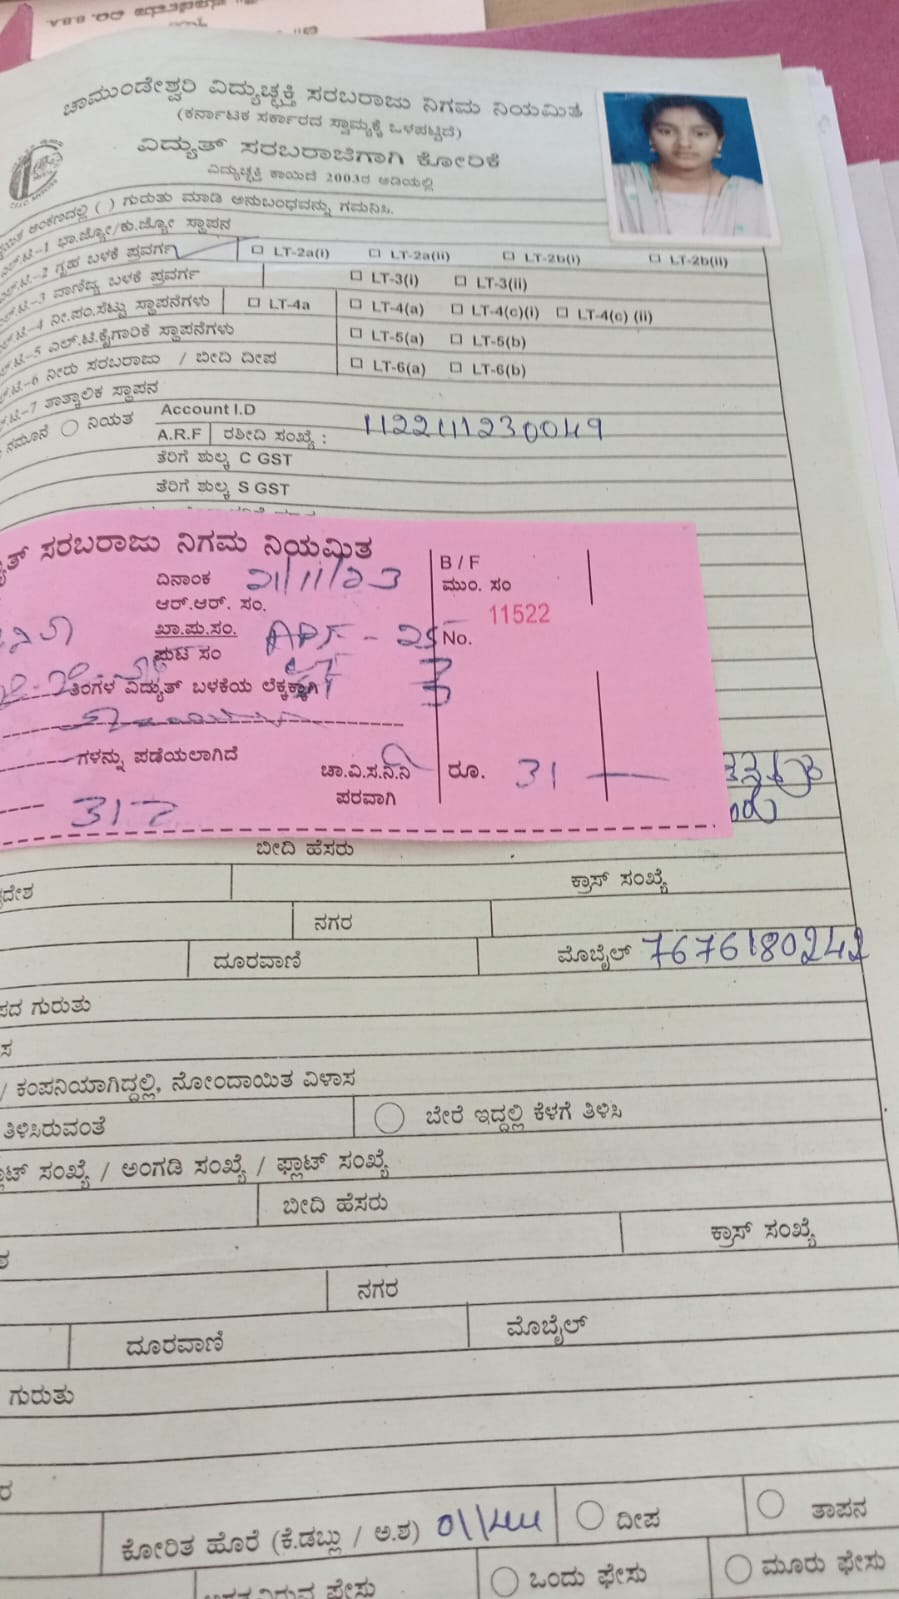 ಚಾಮುಂಡೇಶ್ವರಿ ವಿದ್ಯುಚ್ಛಕ್ತಿ ಸರಬರಾಜು ನಿಗಮ ನಿಯಮಿತ
(ಕರ್ನಾಟಕ ಸರ್ಕಾರದ ಸ್ವಾಮ್ಯಕ್ಕೆ ಒಳಪಟ್ಟಿದೆ)
ವಿದ್ಯುತ್ ಸರಬರಾಜಿಗಾಗಿ ಕೋರಿಕೆ
ವಿದ್ಯುಚ್ಛಕ್ತಿ ಕಾಯಿದೆ 2003ರ ಅಡಿಯಲ್ಲಿ
ಅಂಕಣದಲ್ಲಿ ( ) ಗುರುತು ಮಾಡಿ ಅನುಬಂಧವನ್ನು ಗಮನಿಸಿ.
-1 ಭಾ.ಜ್ಯೋ/ಕು.ಜ್ಯೋ ಸ್ಥಾಪನ
-2 ಗೃಹ ಬಳಕೆ ಪ್ರವರ್ಗ LT-2a(i) LT-2a(ii) LT-2b(i) LT-2b(ii)
-3 ವಾಣಿಜ್ಯ ಬಳಕೆ ಪ್ರವರ್ಗ LT-3(i) LT-3(ii)
-4 ನೀ.ಪಂ.ಸೆಟ್ಟು ಸ್ಥಾಪನೆಗಳು LT-4a LT-4(a) LT-4(c)(i) LT-4(c) (ii)
-5 ಎಲ್.ಟಿ.ಕೈಗಾರಿಕೆ ಸ್ಥಾಪನೆಗಳು LT-5(a) LT-5(b)
-6 ನೀರು ಸರಬರಾಜು / ಬೀದಿ ದೀಪ LT-6(a) LT-6(b)
-7 ತಾತ್ಕಾಲಿಕ ಸ್ಥಾಪನ
ನಮೂನೆ ನಿಯತ Account I.D
A.R.F ರಶೀದಿ ಸಂಖ್ಯೆ : 1122111230049
ತೆರಿಗೆ ಶುಲ್ಕ C GST
ತೆರಿಗೆ ಶುಲ್ಕ S GST
ಸರಬರಾಜು ನಿಗಮ ನಿಯಮಿತ
ದಿನಾಂಕ 21/11/23
B / F
ಆರ್.ಆರ್. ಸಂ.
ಮುಂ. ಸಂ
ಖಾ.ಪು.ಸಂ.
No. 11522
ಪುಟ ಸಂ
ತಿಂಗಳ ವಿದ್ಯುತ್ ಬಳಕೆಯ ಲೆಕ್ಕಕ್ಕಾಗಿ
ಗಳನ್ನು ಪಡೆಯಲಾಗಿದೆ
ಚಾ.ವಿ.ಸ.ನಿ.ನಿ ರೂ. 31
ಪರವಾಗಿ
ಬೀದಿ ಹೆಸರು
ಕ್ರಾಸ್ ಸಂಖ್ಯೆ
ನಗರ
ದೂರವಾಣಿ ಮೊಬೈಲ್ 7676180242
ಗುರುತು
/ ಕಂಪನಿಯಾಗಿದ್ದಲ್ಲಿ, ನೋಂದಾಯಿತ ವಿಳಾಸ
ತಿಳಿಸಿರುವಂತೆ ಬೇರೆ ಇದ್ದಲ್ಲಿ ಕೆಳಗೆ ತಿಳಿಸಿ
ಸಂಖ್ಯೆ / ಅಂಗಡಿ ಸಂಖ್ಯೆ / ಫ್ಲಾಟ್ ಸಂಖ್ಯೆ
ಬೀದಿ ಹೆಸರು
ಕ್ರಾಸ್ ಸಂಖ್ಯೆ
ನಗರ
ದೂರವಾಣಿ ಮೊಬೈಲ್
ಗುರುತು
ಕೋರಿತ ಹೊರೆ (ಕೆ.ಡಬ್ಲು / ಅ.ಶ) ದೀಪ ತಾಪನ
ಫೇಸು ಒಂದು ಫೇಸು ಮೂರು ಫೇಸು